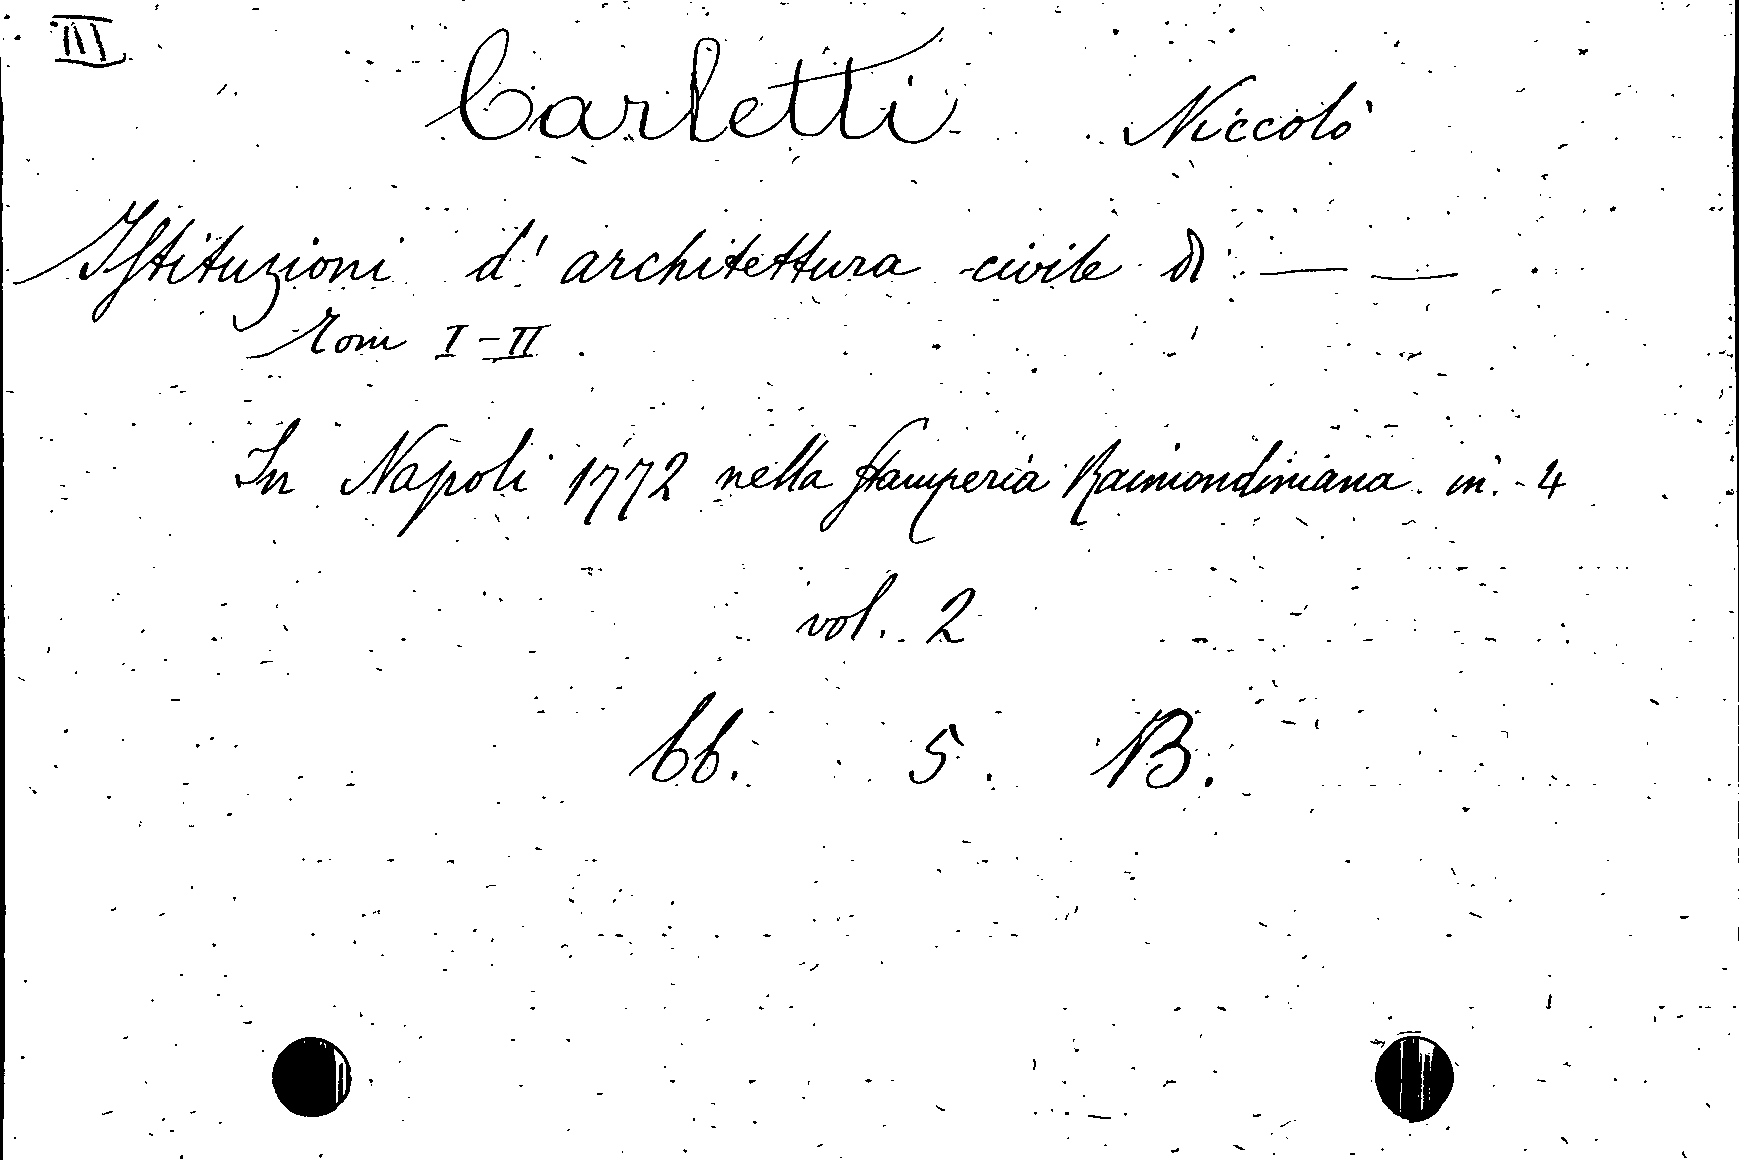 III
Carletti Niccolò
Istituzioni d'architettura civile di — —
Tom I-II.
In Napoli 1772 nella stamperia Raimondiniana in-4
vol. 2
bb. 5. B.